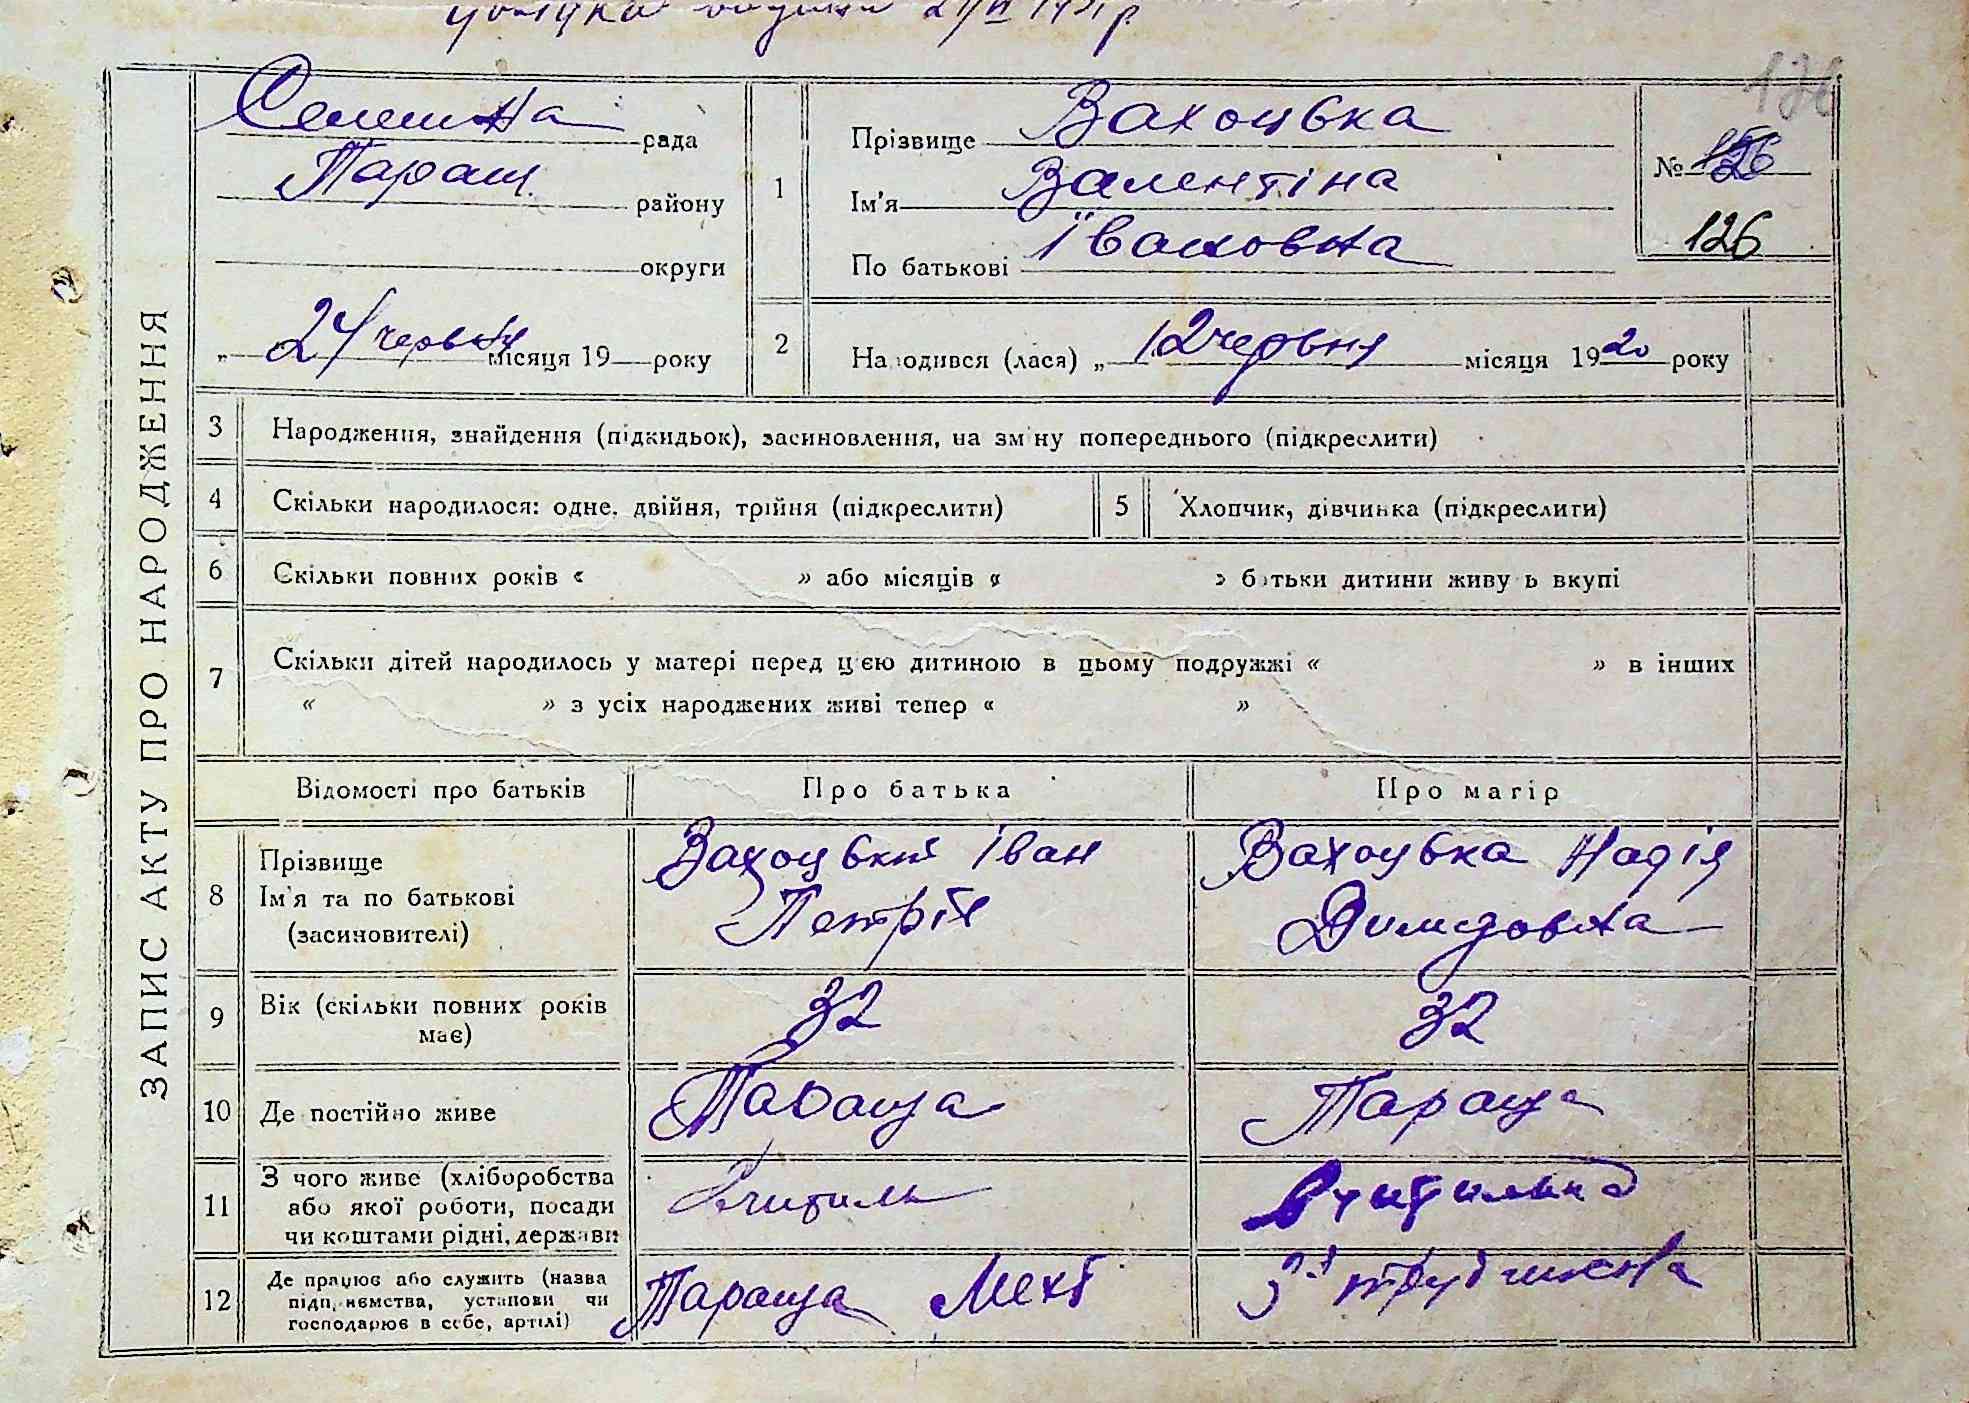 126
Селищна рада
Таращ. району
округи
„ 24 червня місяця 19 року
1
Прізвище Вахоцька
Ім'я Валентіна
По батькові Івановна
№ 126
126
2
Народився (лася) „ 12 червня місяця 1920 року
ЗАПИС АКТУ ПРО НАРОДЖЕННЯ
3 Народження, знайдення (підкидьок), засиновлення, на зміну попереднього (підкреслити)
4 Скільки народилося: одне, двійня, трійня (підкреслити) 5 Хлопчик, дівчинка (підкреслити)
6 Скільки повних років « » або місяців « » батьки дитини живуть вкупі
7 Скільки дітей народилось у матері перед цією дитиною в цьому подружжі « » в інших
« » з усіх народжених живі тепер « »
Відомості про батьків Про батька Про матір
8 Прізвище
Ім'я та по батькові
(засиновителі)
Вахоцький Іван
Петрів
Вахоцька Надія
Димидовна
9 Вік (скільки повних років
має)
32 32
10 Де постійно живе Тараща Тараща
11 З чого живе (хліборобства
або якої роботи, посади
чи коштами рідні, держави
Вчитиль Вчитилька
12 Де працює або служить (назва
підприємства, установи чи
господарює в себе, артілі)
Тараща